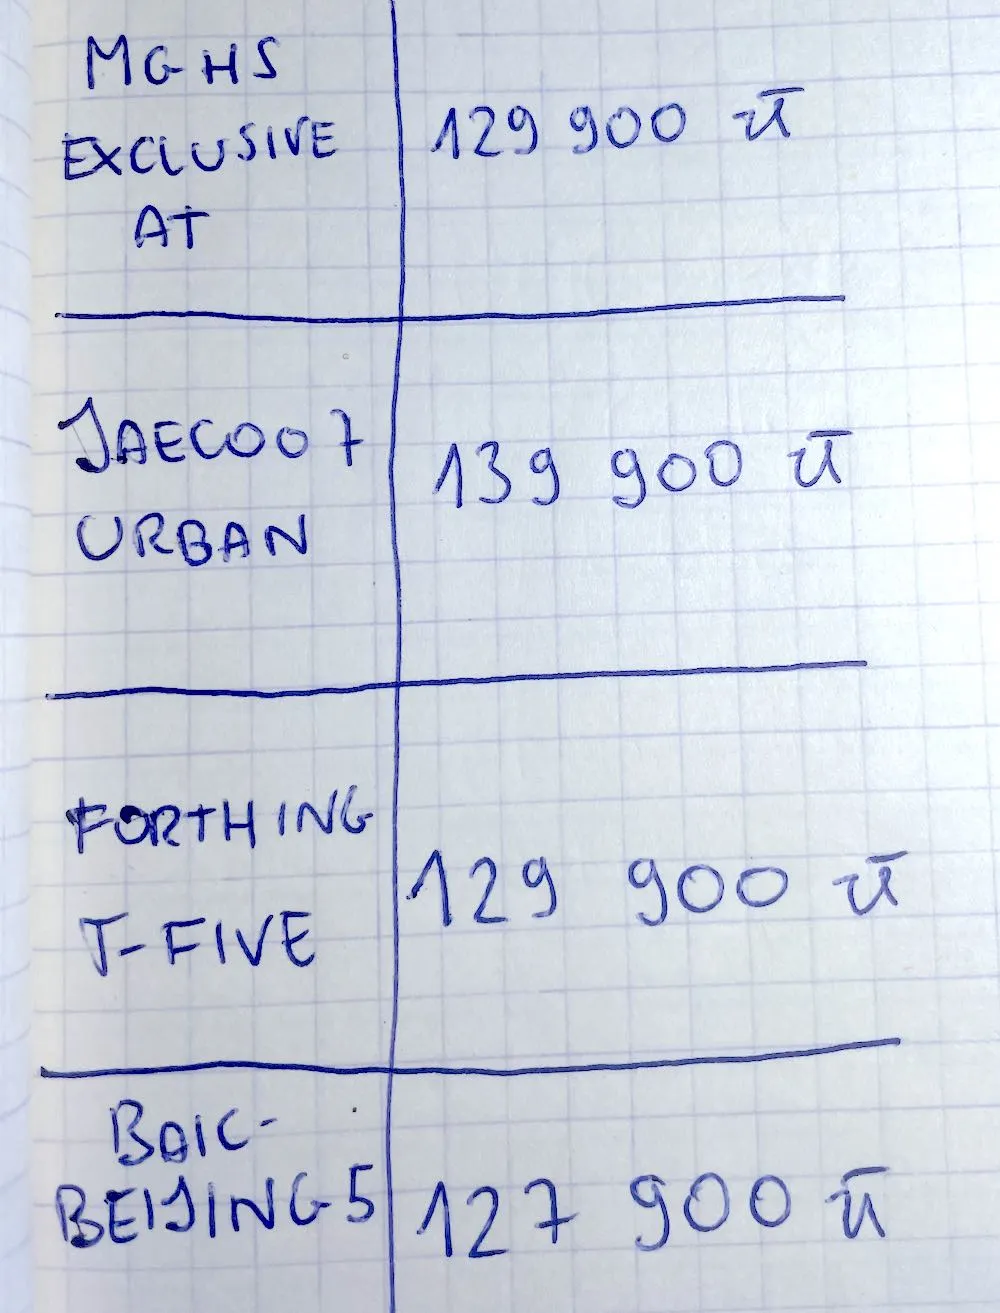 MG HS
EXCLUSIVE
AT
129 900 zł
JAECOO 7
URBAN
139 900 zł
FORTHING
T-FIVE
129 900 zł
BAIC-
BEIJING 5
127 900 zł